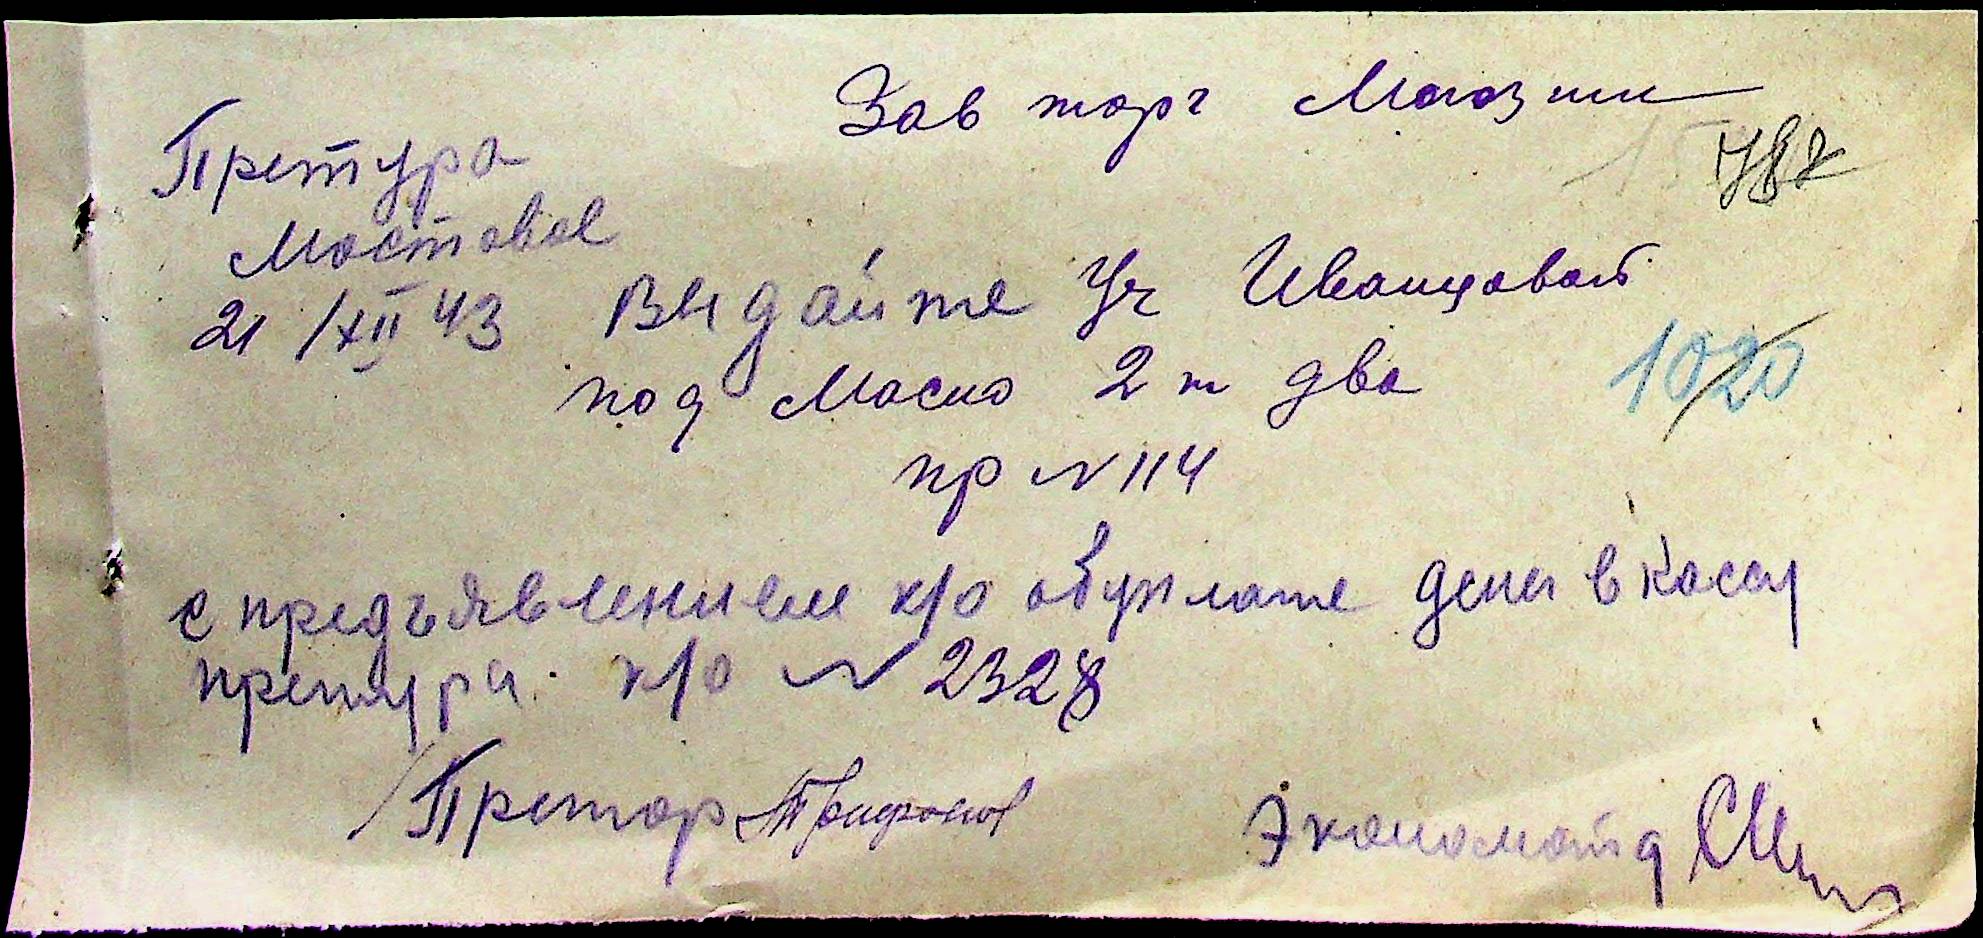 Зав торг Магозин
Претура
Мостовое
21/XII 43 Выдайте Уч Иванцовой
под Масло 2 т два
пр N 114
1020
с предъявлением к/о обуплате денег в кассу
претуры. к/о N 2328
Претор Трифонов
Эконом отд